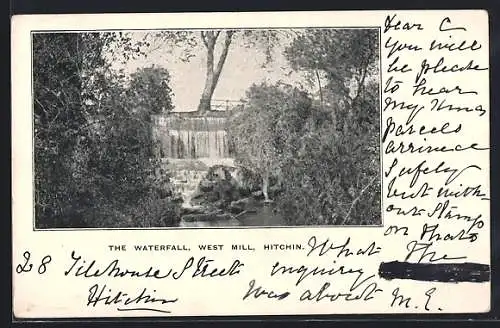 Dear C
You will
be please
to hear
my Xmas
parcels
arrived
safely
but with-
out stamp
on thats
What The
enquiry
was about M. E.
THE WATERFALL, WEST MILL, HITCHIN.
28 Tilehouse Street
Hitchin